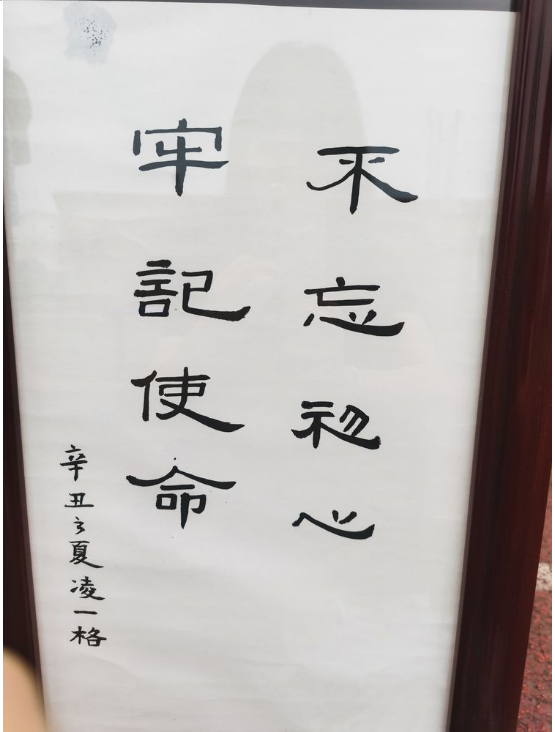 不忘初心
牢記使命
辛丑之夏凌一格